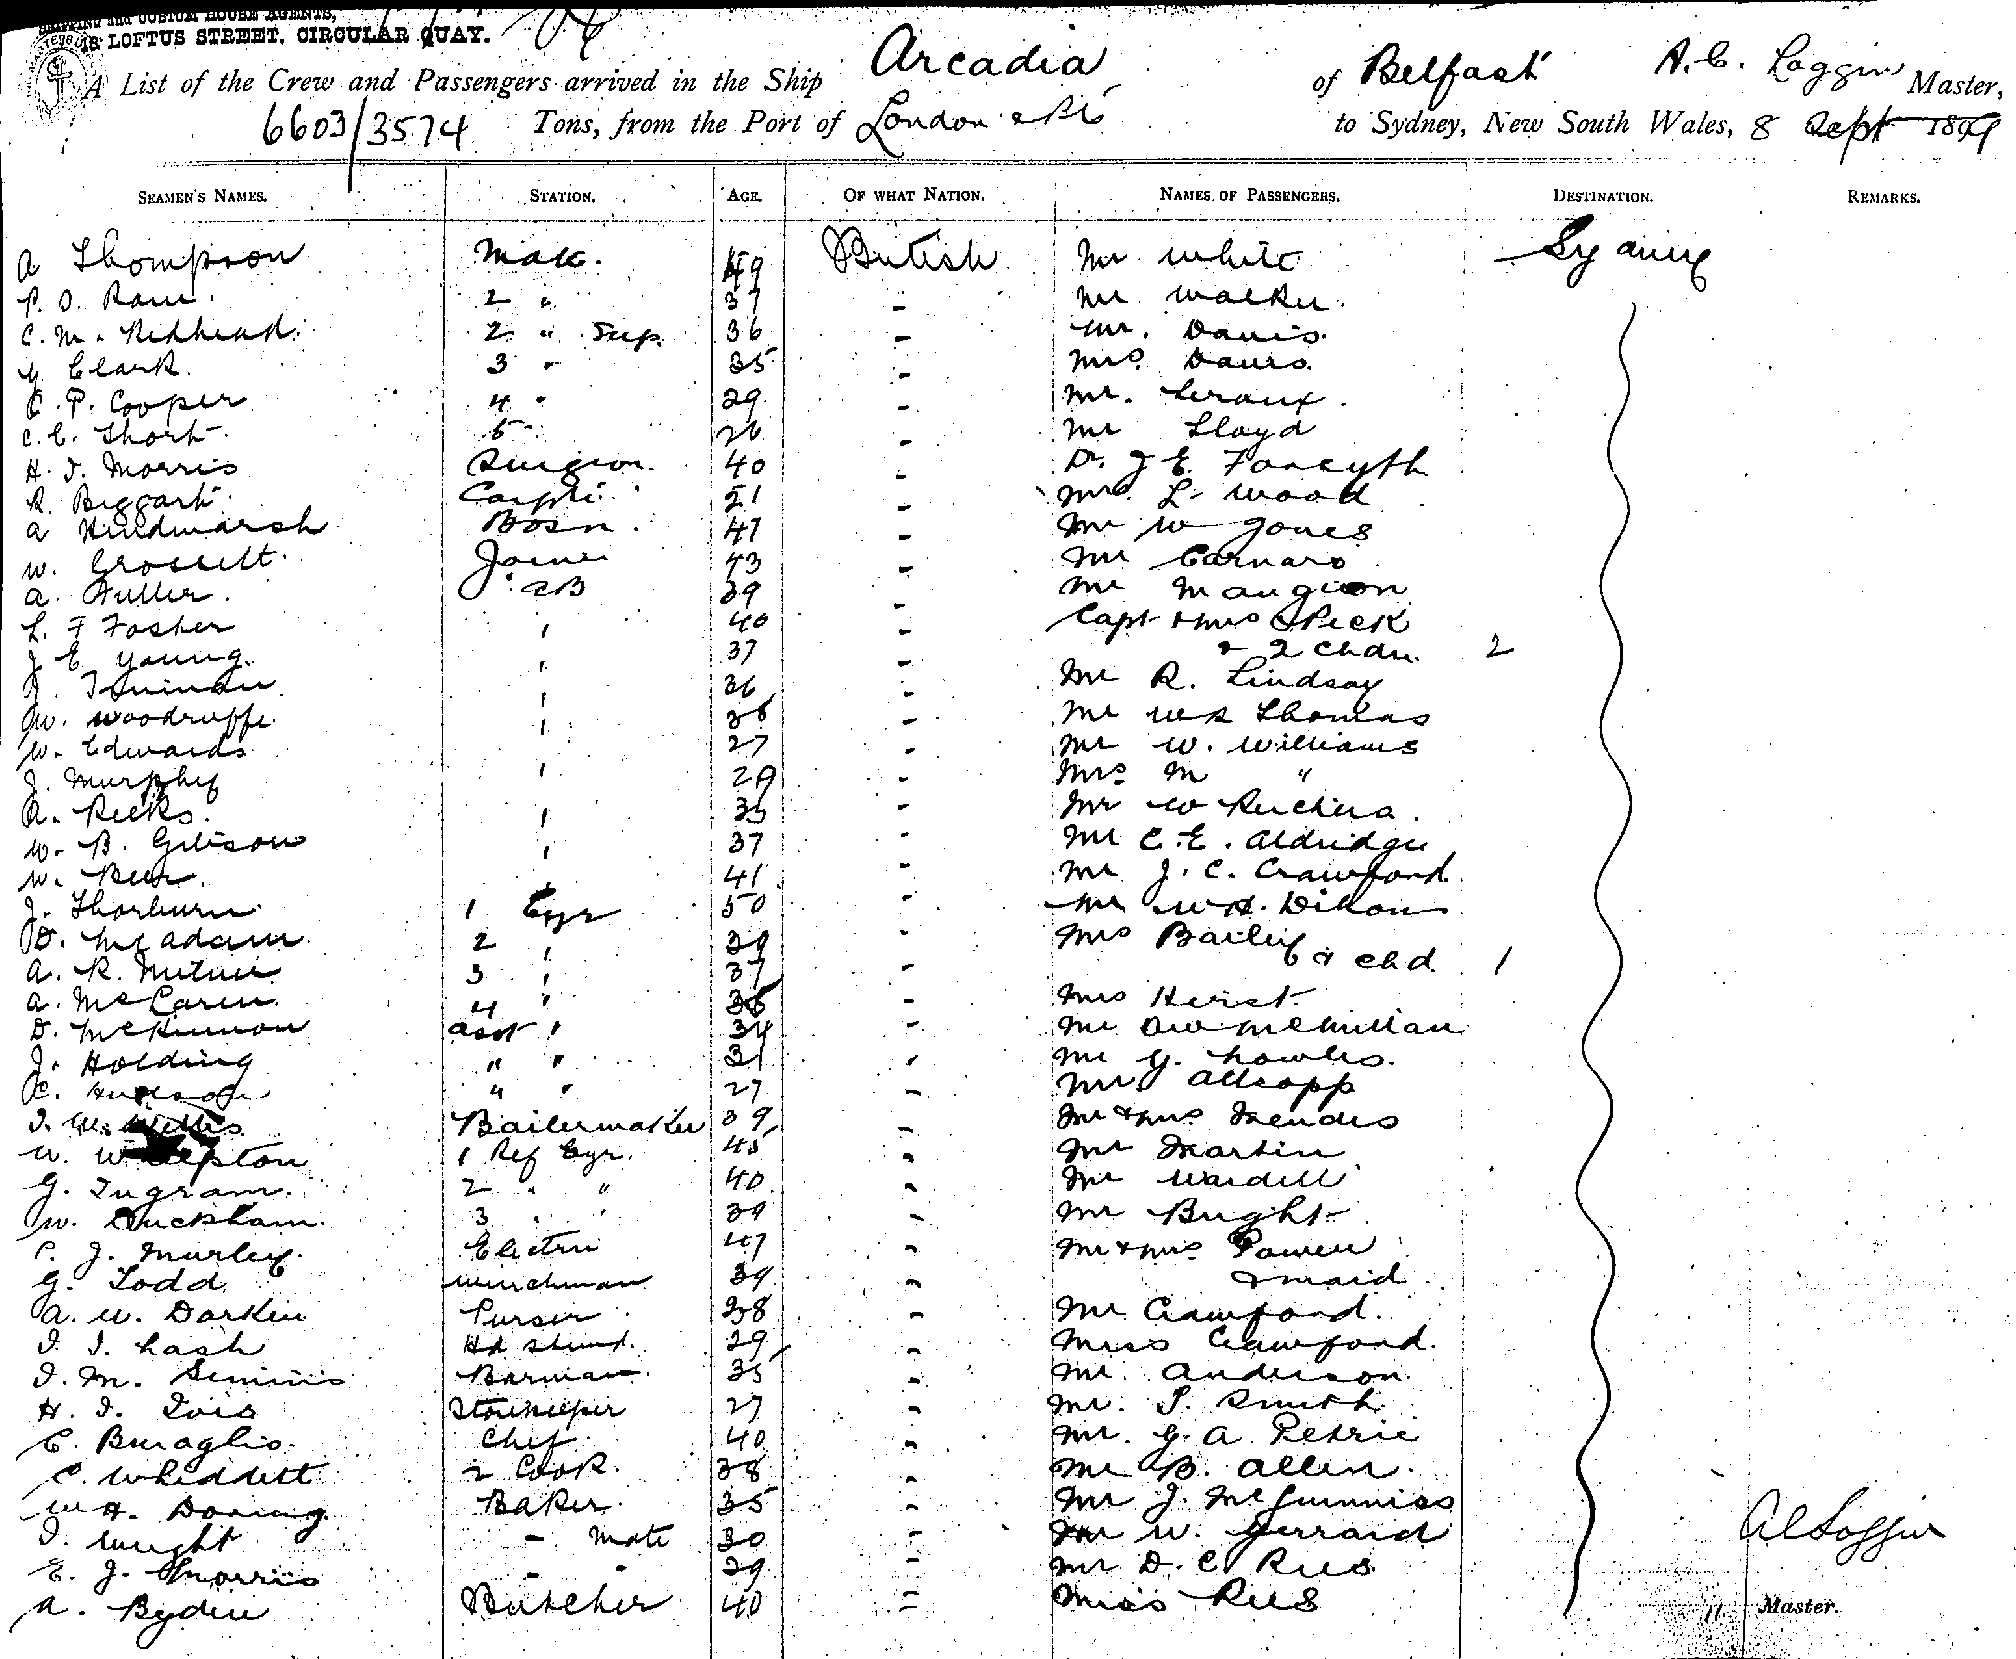 SHIPPING and CUSTOM HOUSE AGENTS,
LOFTUS STREET, CIRCULAR QUAY.
A List of the Crew and Passengers arrived in the Ship Arcadia of Belfast A. C. Loggin Master,
6603/3574 Tons, from the Port of London to Sydney, New South Wales, 8 Sept 1899
SEAMEN'S NAMES. STATION. AGE. OF WHAT NATION. NAMES OF PASSENGERS. DESTINATION. REMARKS.
A Thompson Mate. 49 British Mr White Sydney
P. O. 2 " 37 - Mr Walker
C. M. Redhead 2 " Sup 36 - Mr. Davis
Clark 3 " 35 - Mrs Davis
C. P. Cooper 4 " 29 - Mr. Leroux
C. C. Short 5 " 26 - Mr Lloyd
H. J. Morris Surgeon 40 - Dr. J E. Forsyth
R. Biggart Carptr 51 - L. Wood
A Hindmarsh Bosn 47 - Mr W Jones
W. Joiner 43 - Mr Carnaro
A. Fuller AB 39 - Mr Mangion
L. F Foster " 40 - Capt & Mrs Peck
J E Young " 37 - & 2 Chdn. 2
J. " 36 - Mr R. Lindsay
W. Woodruffe " - Mr Thomas
W. Edwards " 27 - Mr W. Williams
J. Murphy " 29 - Mrs M "
A. Reeks " 35 - Mr W
W. B. Gibson " 37 - Mr C. E. Aldridge
W. " 41 - Mr J. C. Crawford
J. Thorburn 1 Engr 50 - Mr W H. Dixon
D. McAdam 2 " 39 - Mrs Bailey & chd 1
A. R. 3 " 37 -
A. McLaren 4 " - Mrs Heist
D. McKinnon Asst " 34 - Mr McMillan
J. Holding " " 31 - Mr G. Knowles
C. Hudson " " 27 - Mr Allsopp
Boilermaker 39 - Mr & Mrs Mendes
W. 1 Ref Engr. 45 - Mr Martin
G. Ingram 2 " " 40 - Mr Wardell
W. Duckham 3 " " 39 - Mr Bright
P. J. Murley Electrn 47 - Mr & Mrs
G. Todd Winchman 39 - & maid
A. W. Darken Purser 38 - Mr Crawford
Lash Hd Stewd. 29 - Miss Crawford
Barman 35 - Mr Anderson
H. J. Storekeeper 27 - Mr. Smith
C. Buraglio Chef 40 - Mr. G. A Petrie
C. Whiddett 2 Cook 38 - Mr B. Allen
W H. Baker 35 - Mr J. McGuinniss
Wright - Mate 30 - Mr W. Gerrard
E. J. Morris - - 29 - Mr D. C Rees
A. Byden Butcher 40 - Miss Rees
A C Loggin
Master.